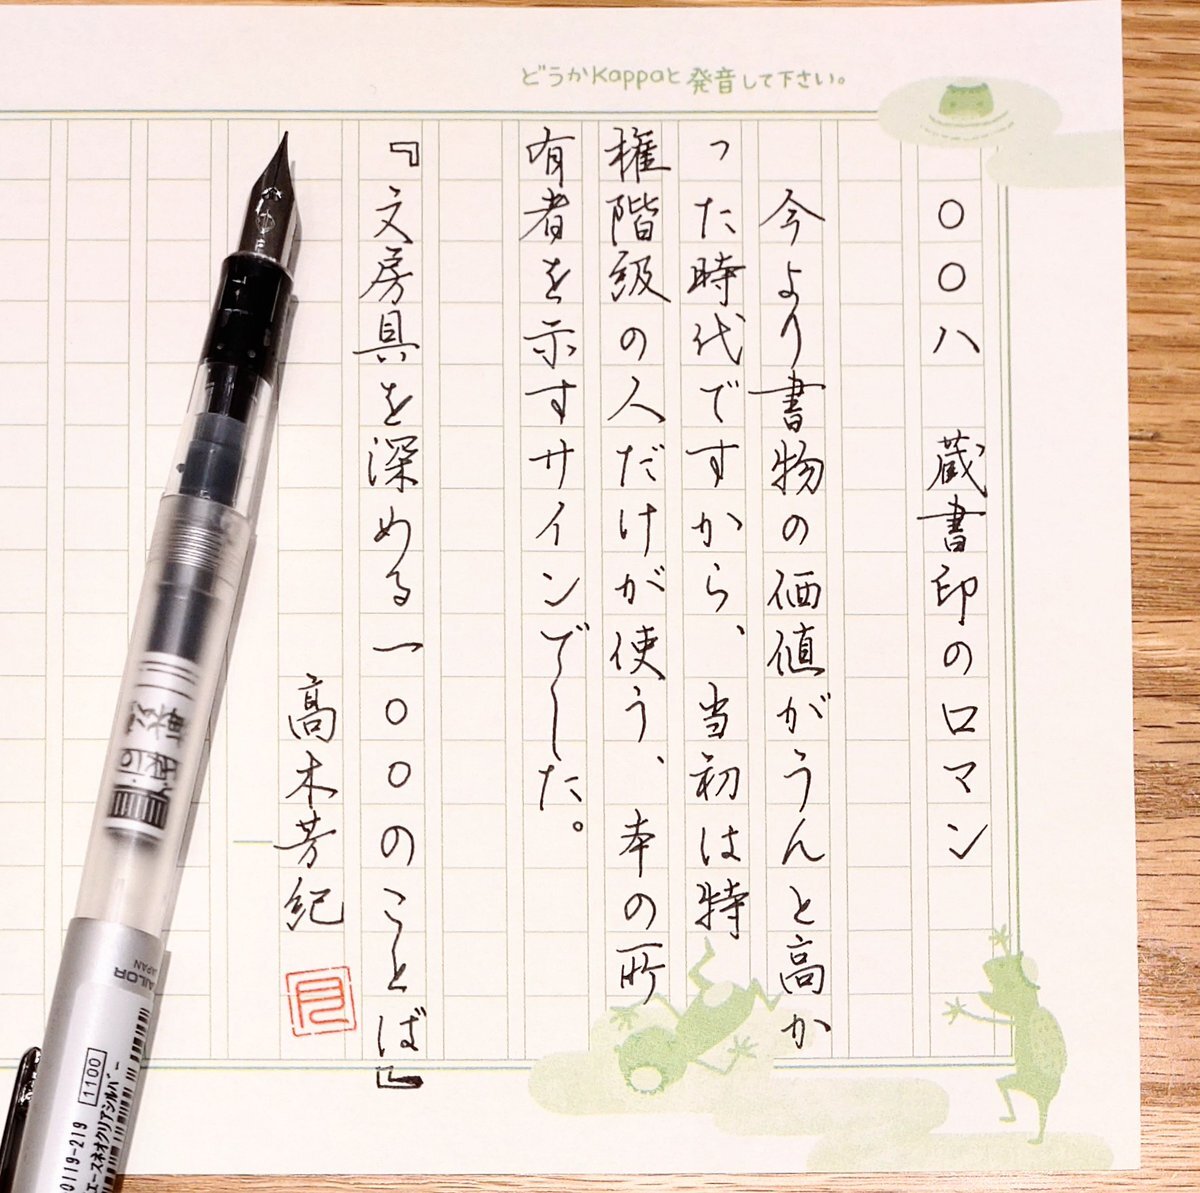 どうかKappaと発音して下さい。
〇〇八 蔵書印のロマン
今より書物の価値がうんと高か
った時代ですから、当初は特
権階級の人だけが使う、本の所
有者を示すサインでした。
『文房具を深める一〇〇のことば』
高木芳紀
SAILOR
JAPAN
1100
0119-219
エースネオクリアシルバー